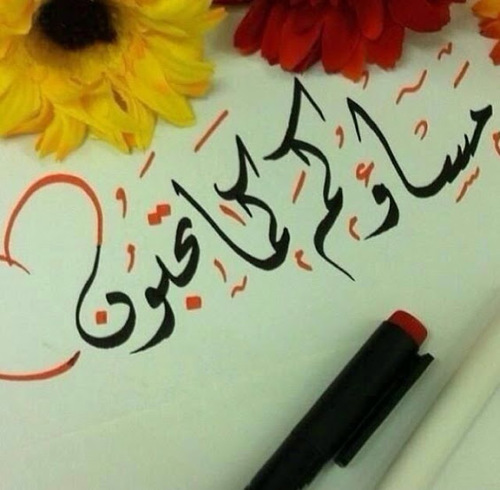 مساؤكم كما تحبون